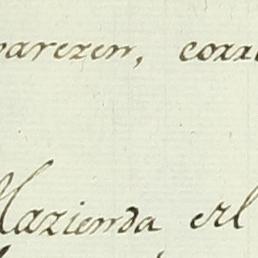 parezen, corr
Hazienda el